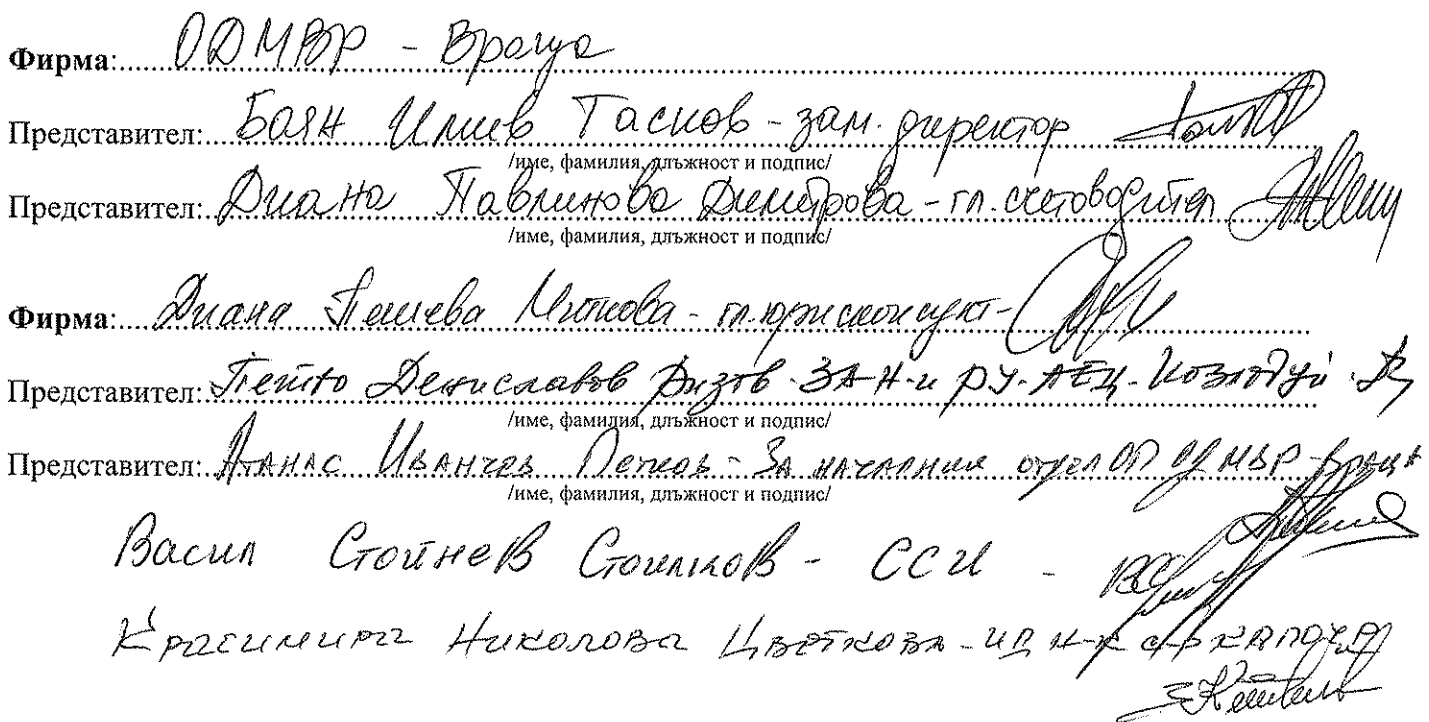 Фирма: ОДМВР - Враца
Представител: Боян Илиев Тасков - зам. директор
/име, фамилия, длъжност и подпис/
Представител: Диана Павлинова Димитрова - гл. счетоводител
/име, фамилия, длъжност и подпис/
Фирма: Диана Пешева Миткова - гл. юрисконсулт -
Представител: Петко Дениславов ЗАН-и РУ-АЕЦ-Козлодуй
/име, фамилия, длъжност и подпис/
Представител: Атанас Иванчев Петков - За началник отдел ОП ОДМВР-Враца
/име, фамилия, длъжност и подпис/
Васил Стойнев Стоилков - ССИ -
Красимира Николова Цветкова - ИД Н-К